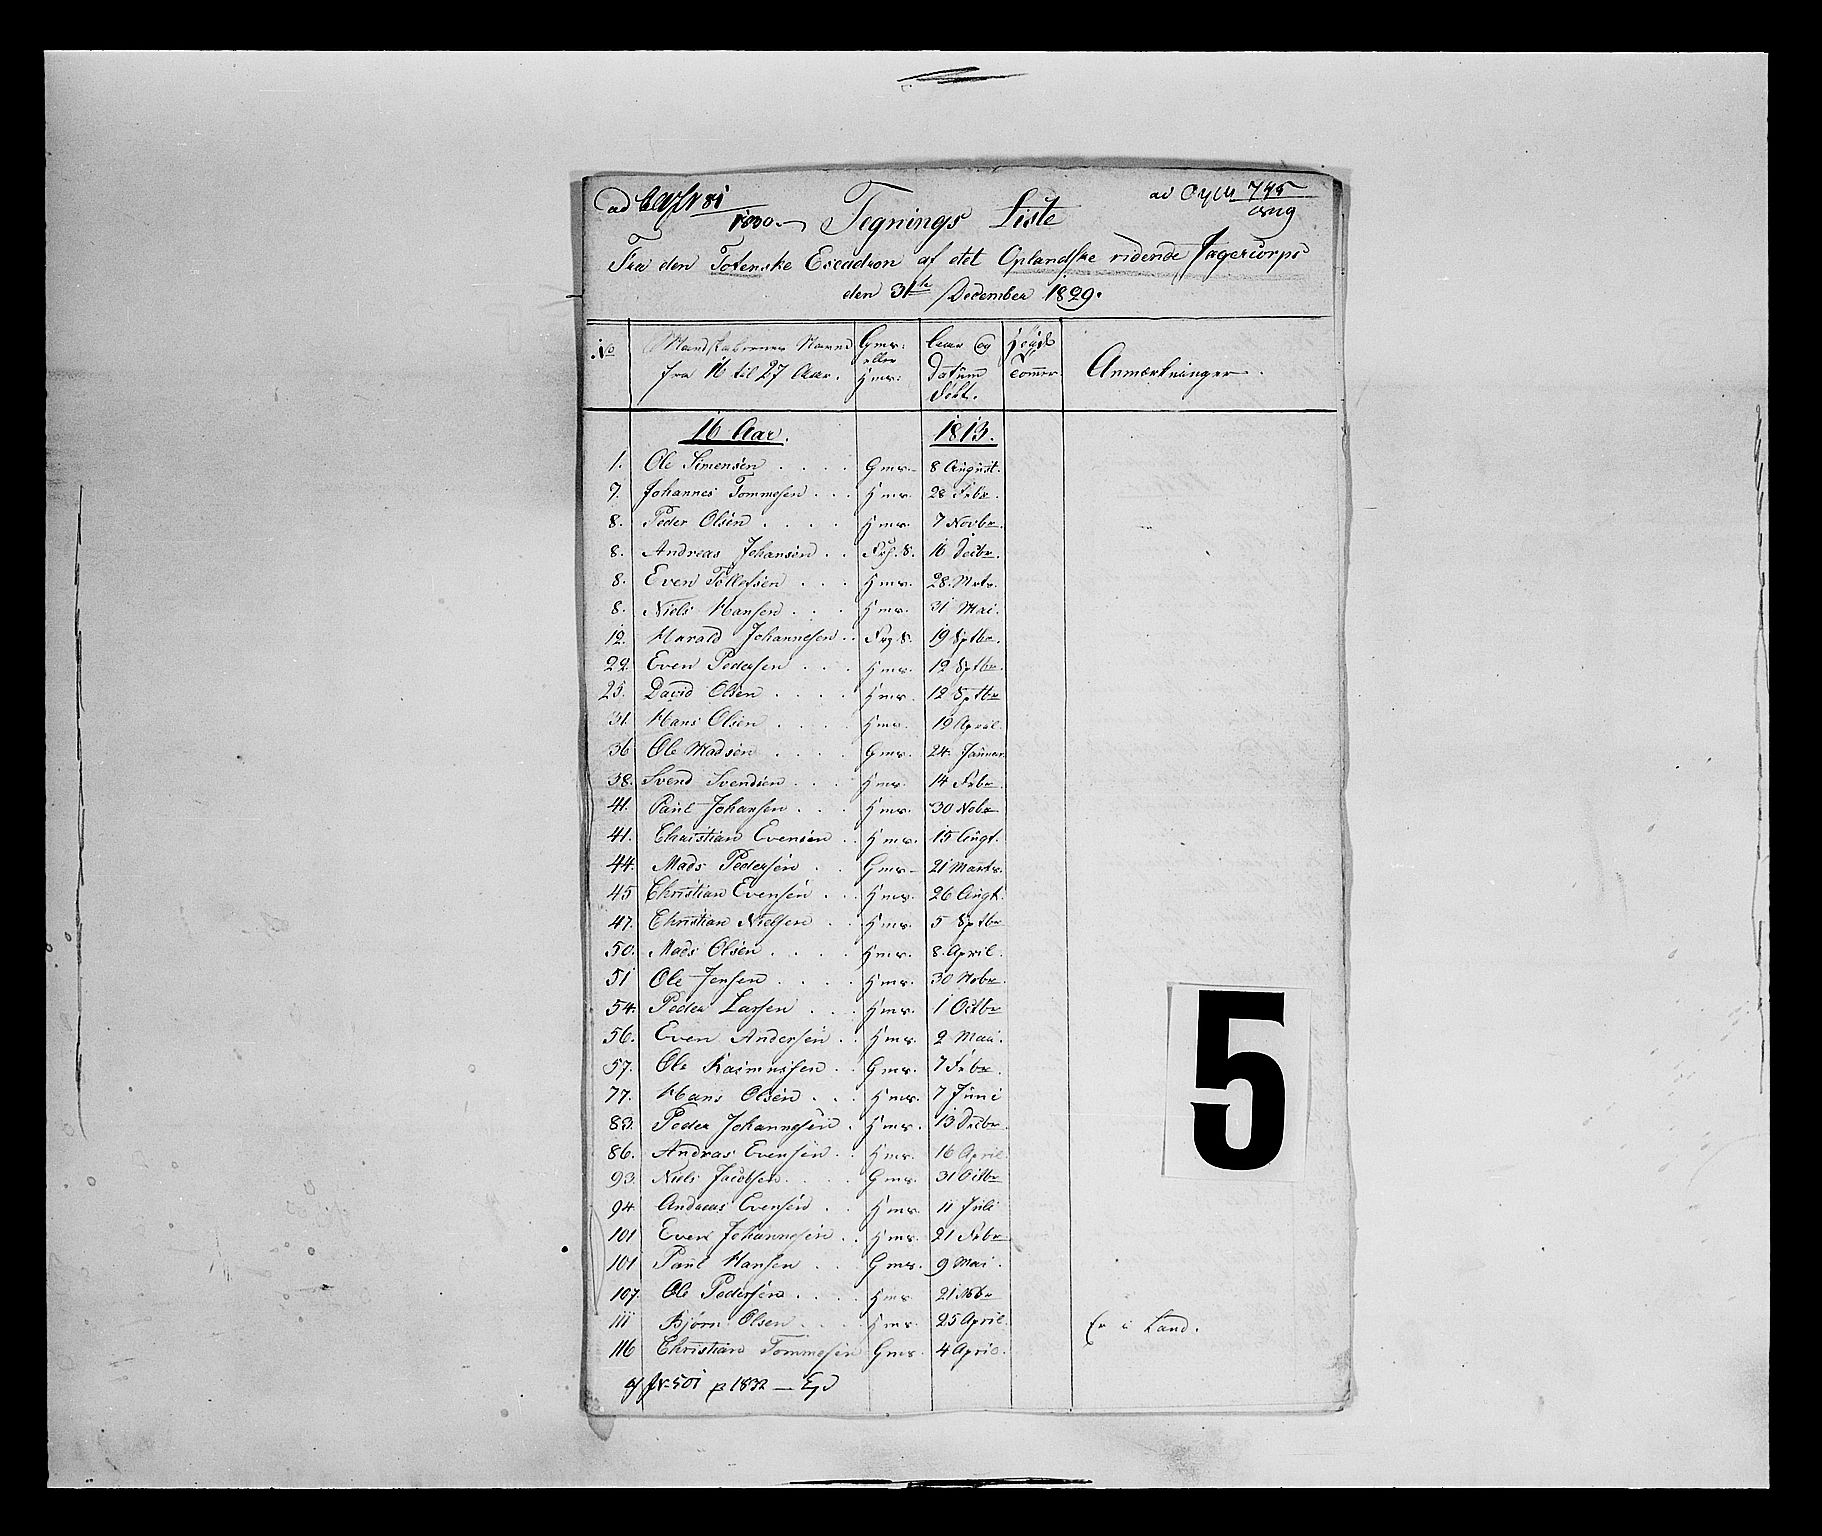 Tegnings Liste
Fra den Totenske Escadron af det Oplandske ridende Jægercorps
den 31te December 1829.
No Mandskabernes Navne fra 16 til 27 Aar. Gms: eller Hms: Aar og Datum Født. Anmærkninger
16 Aar. 1813.
1. Ole Simensen Gms. 8 August.
7. Johannes Tommesen Hms. 28 Febr.
8. Peder Olsen Hms. 7 Novbr.
8. Andreas Johansen 16 Decbr.
8. Even Tollefsen Hms. 28. Mrts.
8. Niels Hansen Hms. 31 Mai.
12. Harald Johannesen 19 Sptbr.
22. Even Pedersen Hms. 12 Sptbr.
25. David Olsen Hms. 12 Sptbr
31. Hans Olsen Hms. 19 April
36 Ole Madsen Gms. 24. Januar
38. Svend Svendsen Hms. 14 Febr
41. Paul Johansen Hms. 30 Nobr
41. Christian Evensen Hms. 15 Augt.
44. Mads Pedersen Gms. 21 Marts.
45 Christian Evensen Hms. 26 Augt.
47. Christian Nielsen Hms. 5 Sptbr
50. Mads Olsen Hms. 8. April.
51 Ole Jensen Hms. 30 Nobr.
54. Peder Larsen Hms. 1 Octbr
56. Even Andersen Hms. 2 Maii.
57. Ole Rasmussen Gms. 7 Febr.
77. Hans Olsen Hms. 7 Juni
83. Peder Johannesen Hms. 13 Decbr.
86. Andras Evensen Hms. 16 April.
93. Niels Jacobsen Gms. 31 Octbr
94. Andreas Evensen Hms. 11 Juli
101 Even Johannesen Hms. 21 Febr
101 Paul Hansen Gms. 9 Mai.
107. Ole Pedersen Hms. 21 Nobr
111 Bjørn Olsen Hms. 25 April. Er i Land.
116 Christian Tommesen Gms. 4 April.
5